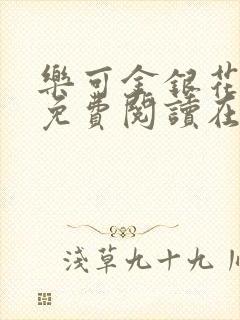 樂可金銀花
免費閱讀在
淺草九十九